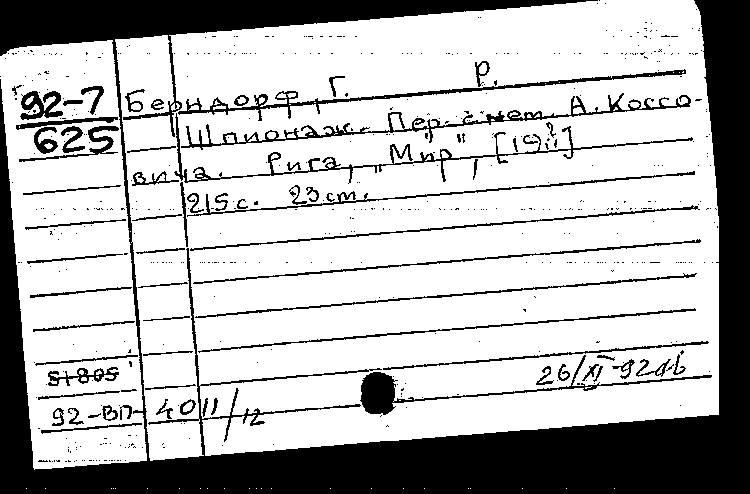 р.
92-7 Берндорф, Г.
625 Шпионаж. Пер. с нем. А. Коссо-
вича. Рига, „Мир", [19??]
215 с. 23 cm.
51805
26/XI-92
92-ВП-4011/12